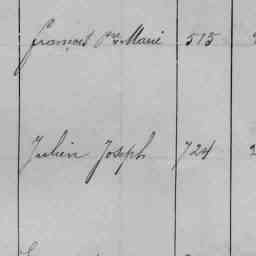 François Pre Marie 515
Julien Joseph 724